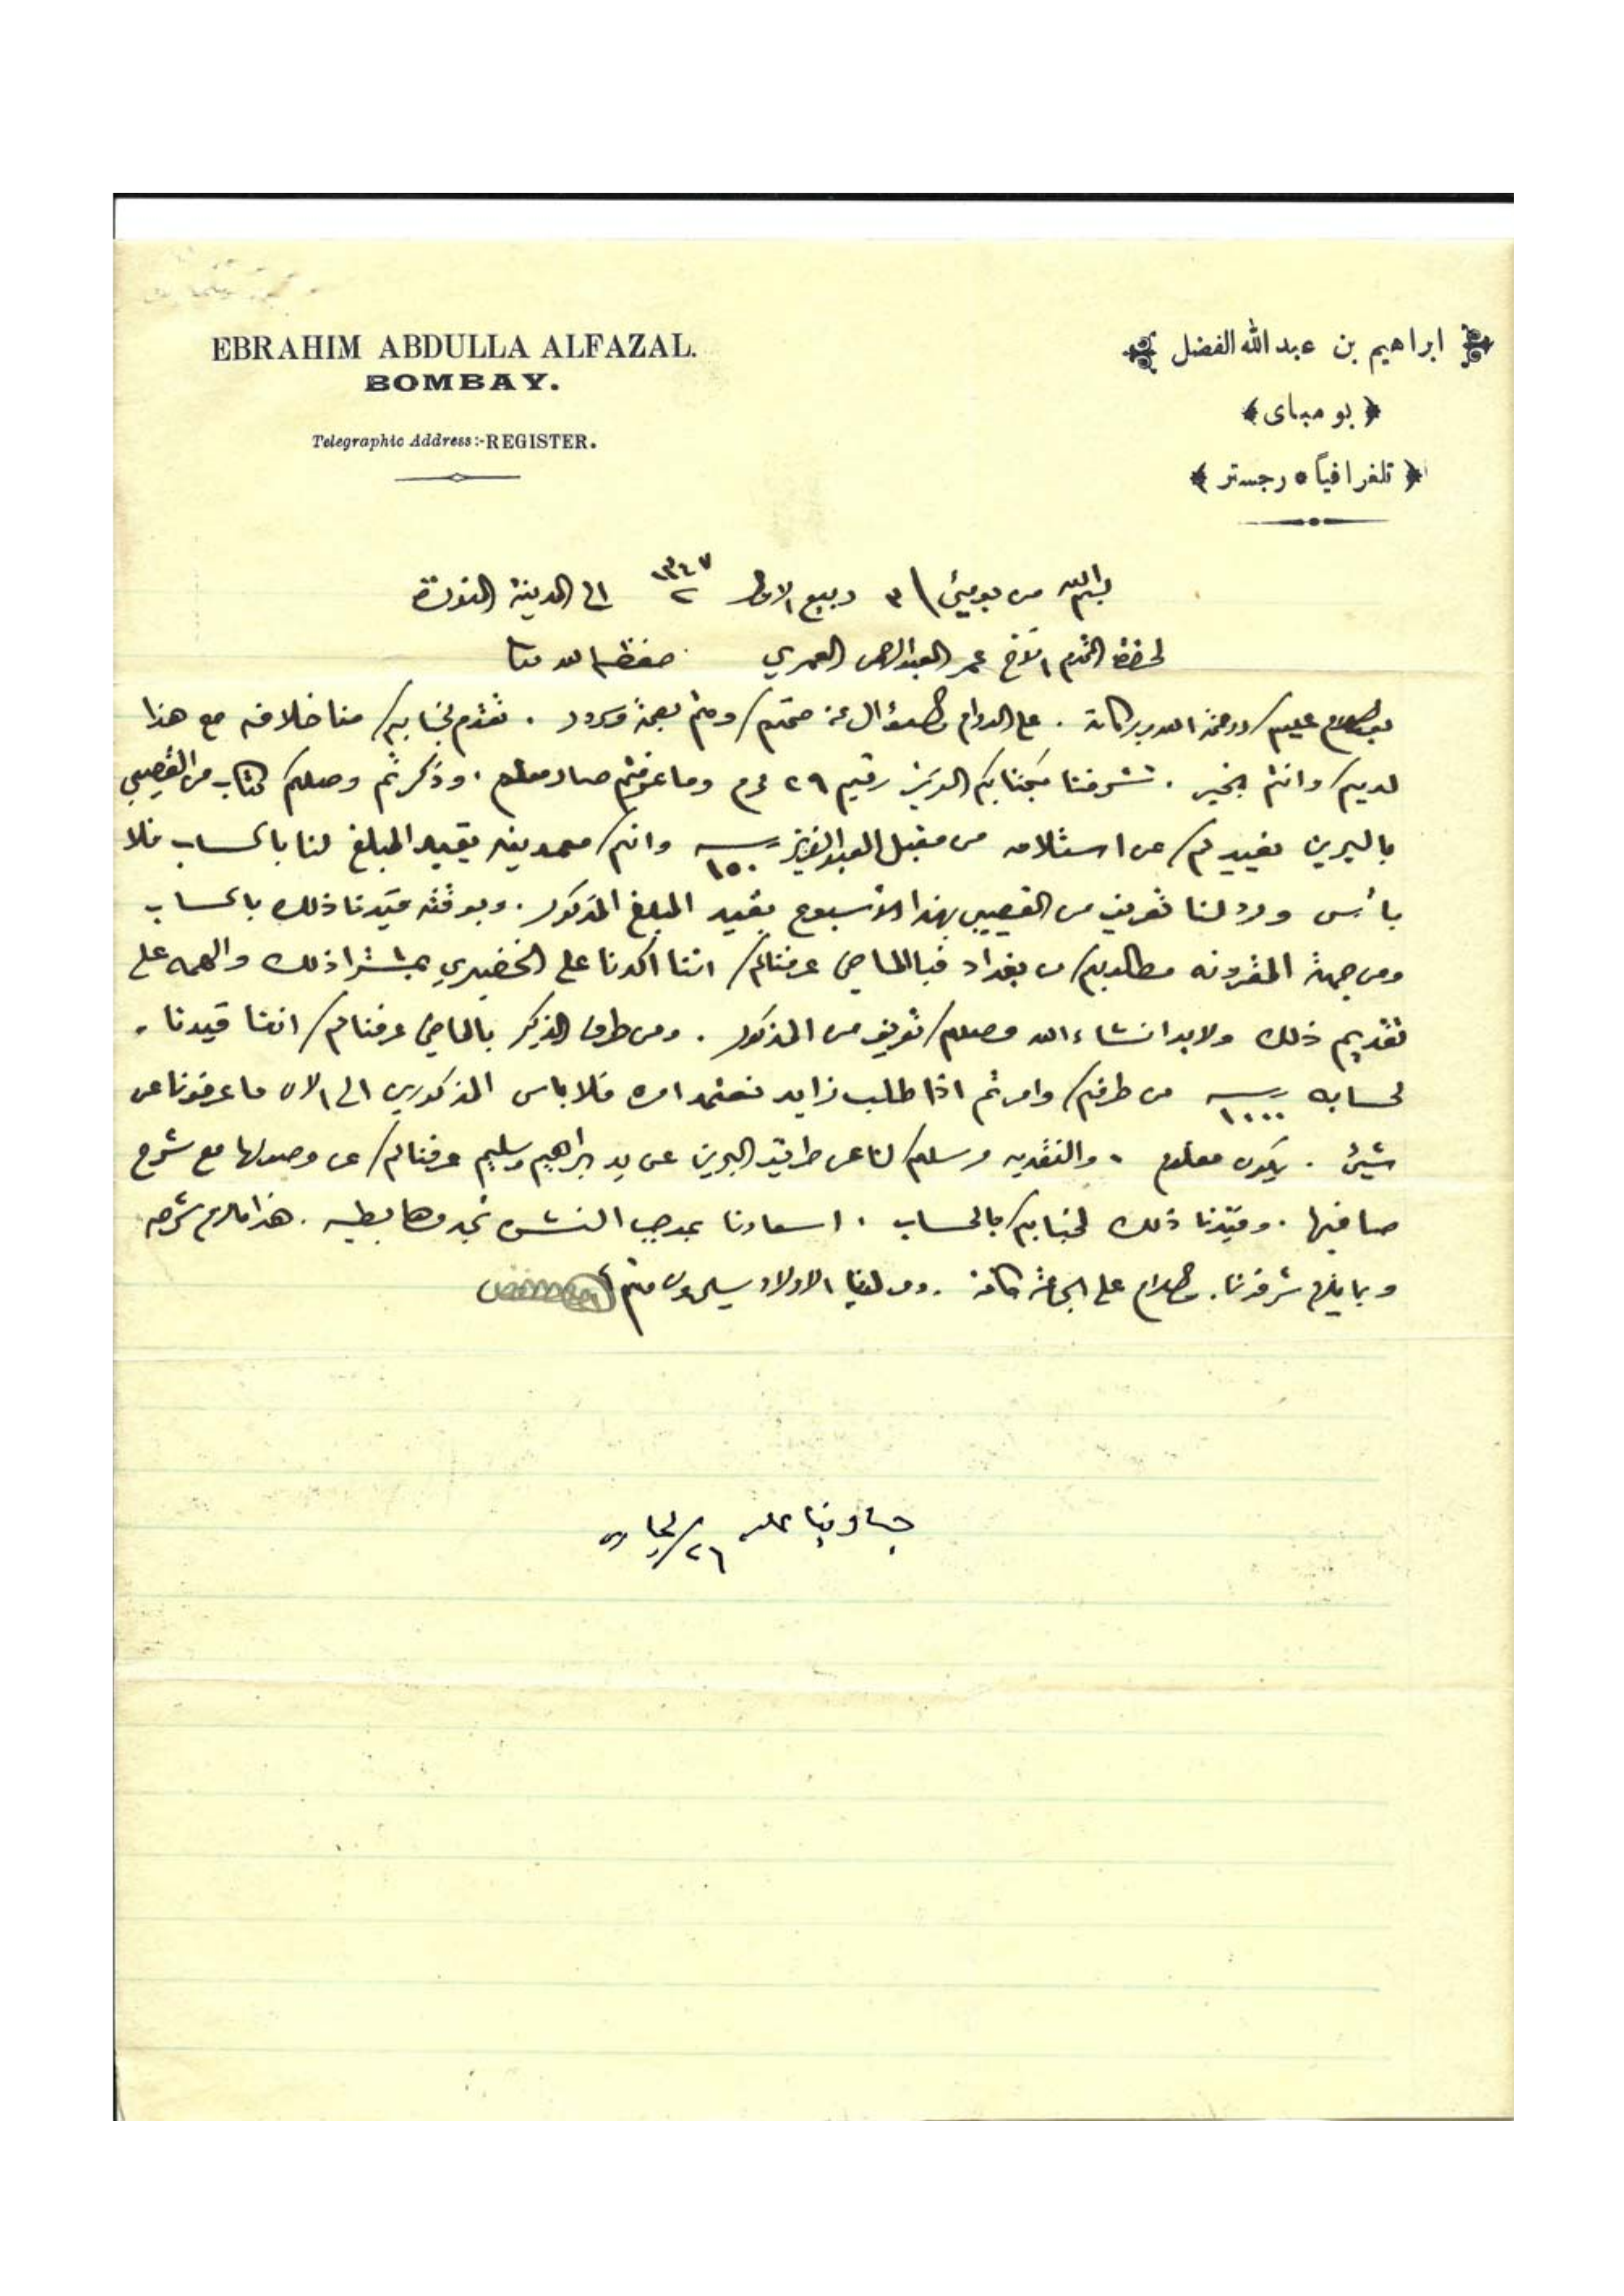 EBRAHIM ABDULLA ALFAZAL.
BOMBAY.
Telegraphic Address:-REGISTER.
ابراهيم بن عبدالله الفضل
بومباى
تلغرافياً ٥ رجستر
بسم الله من بومبئ ٣ ربيع الاول ١٣٤٧ الى المدينة المنورة
لحضرة المكرم الأخ عمر العبدالرحمن العمري حفظه الله
بعد السلام عليكم ورحمة الله وبركاته . على الدوام والسؤال عن صحتكم وانتم بصحة وسرور . تقدم لجنابكم منا خلافه مع هذا
لديكم وانتم بخير . تشرفنا بكتابكم العزيز رقيم ٢٩ محرم وما عرفتم صار معلوم . وذكرتم وصلكم كتاب من القصيبي
بالبحرين يفيدكم عن استلامه من مقبل العبدالعزيز ١٥٠ وانكم تقييد المبلغ لنا بالحساب فلا
بأس ورد لنا تعريف من القصيبي بهذا الأسبوع بقيد المبلغ المذكور . وبوقته قيدنا ذلك بالحساب
ومن جهة مطلوبكم من بغداد فبالماضي عرفناكم اننا اكدنا على الخضيري بمشترا ذلك والهمه على
تقديم ذلك ولابد انشاء الله وصلكم تعريف من المذكور . ومن طرف الذكير بالماضي عرفناكم اننا قيدنا
لحسابه ١٠٠٠ من طرفكم وامرتم اذا طلب زايد نعتمد امره فلاباس المذكورين الى الان ما عرفونا عن
شيئ . يكون معلوم . والنقديه مرسلكم لنا عن طريق البحرين عن يد ابراهيم وسليم عرفناكم عن وصولها مع شرح
صافيها . وقيدنا ذلك لجنابكم بالحساب . اسعارنا بموجب النشره تجدوها بطيه . هذا مالزم شرحه
وبما يلزم شرفونا . والسلام على الجماعة كافة . ومن لدينا الاولاد يسلمون
جاوبنا عليه ٢٦ الجاري